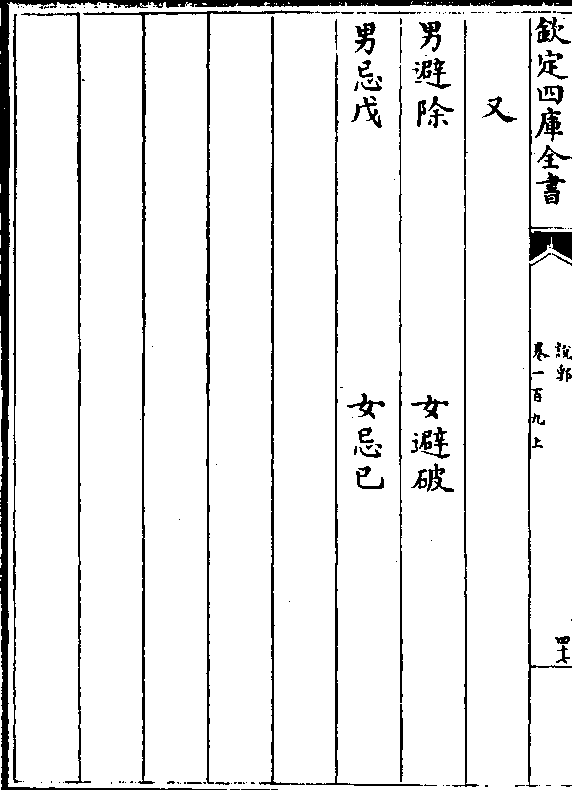 欽定四庫全書
說郛
卷一百九上
四十七
又
男避除 女避破
男忌戊 女忌已